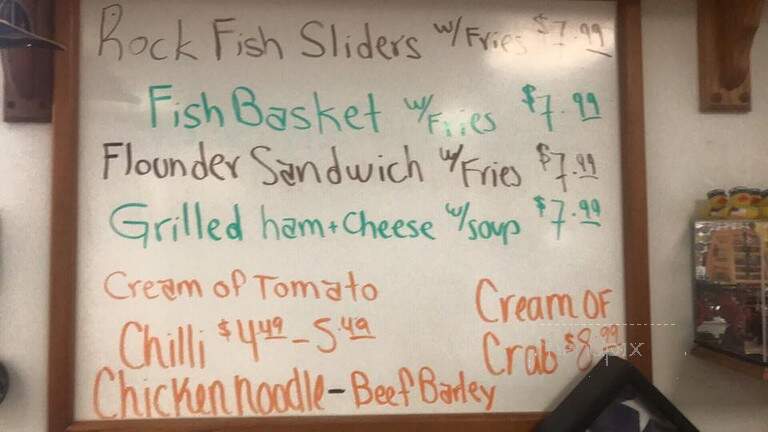 Rock Fish Sliders w/Fries $7.99
Fish Basket w/Fries $7.99
Flounder Sandwich w/Fries $7.99
Grilled ham + Cheese w/soup $7.99
Cream of Tomato
Chilli $4.49 - 5.49
Chicken noodle - Beef Barley
Cream OF
Crab $8.99